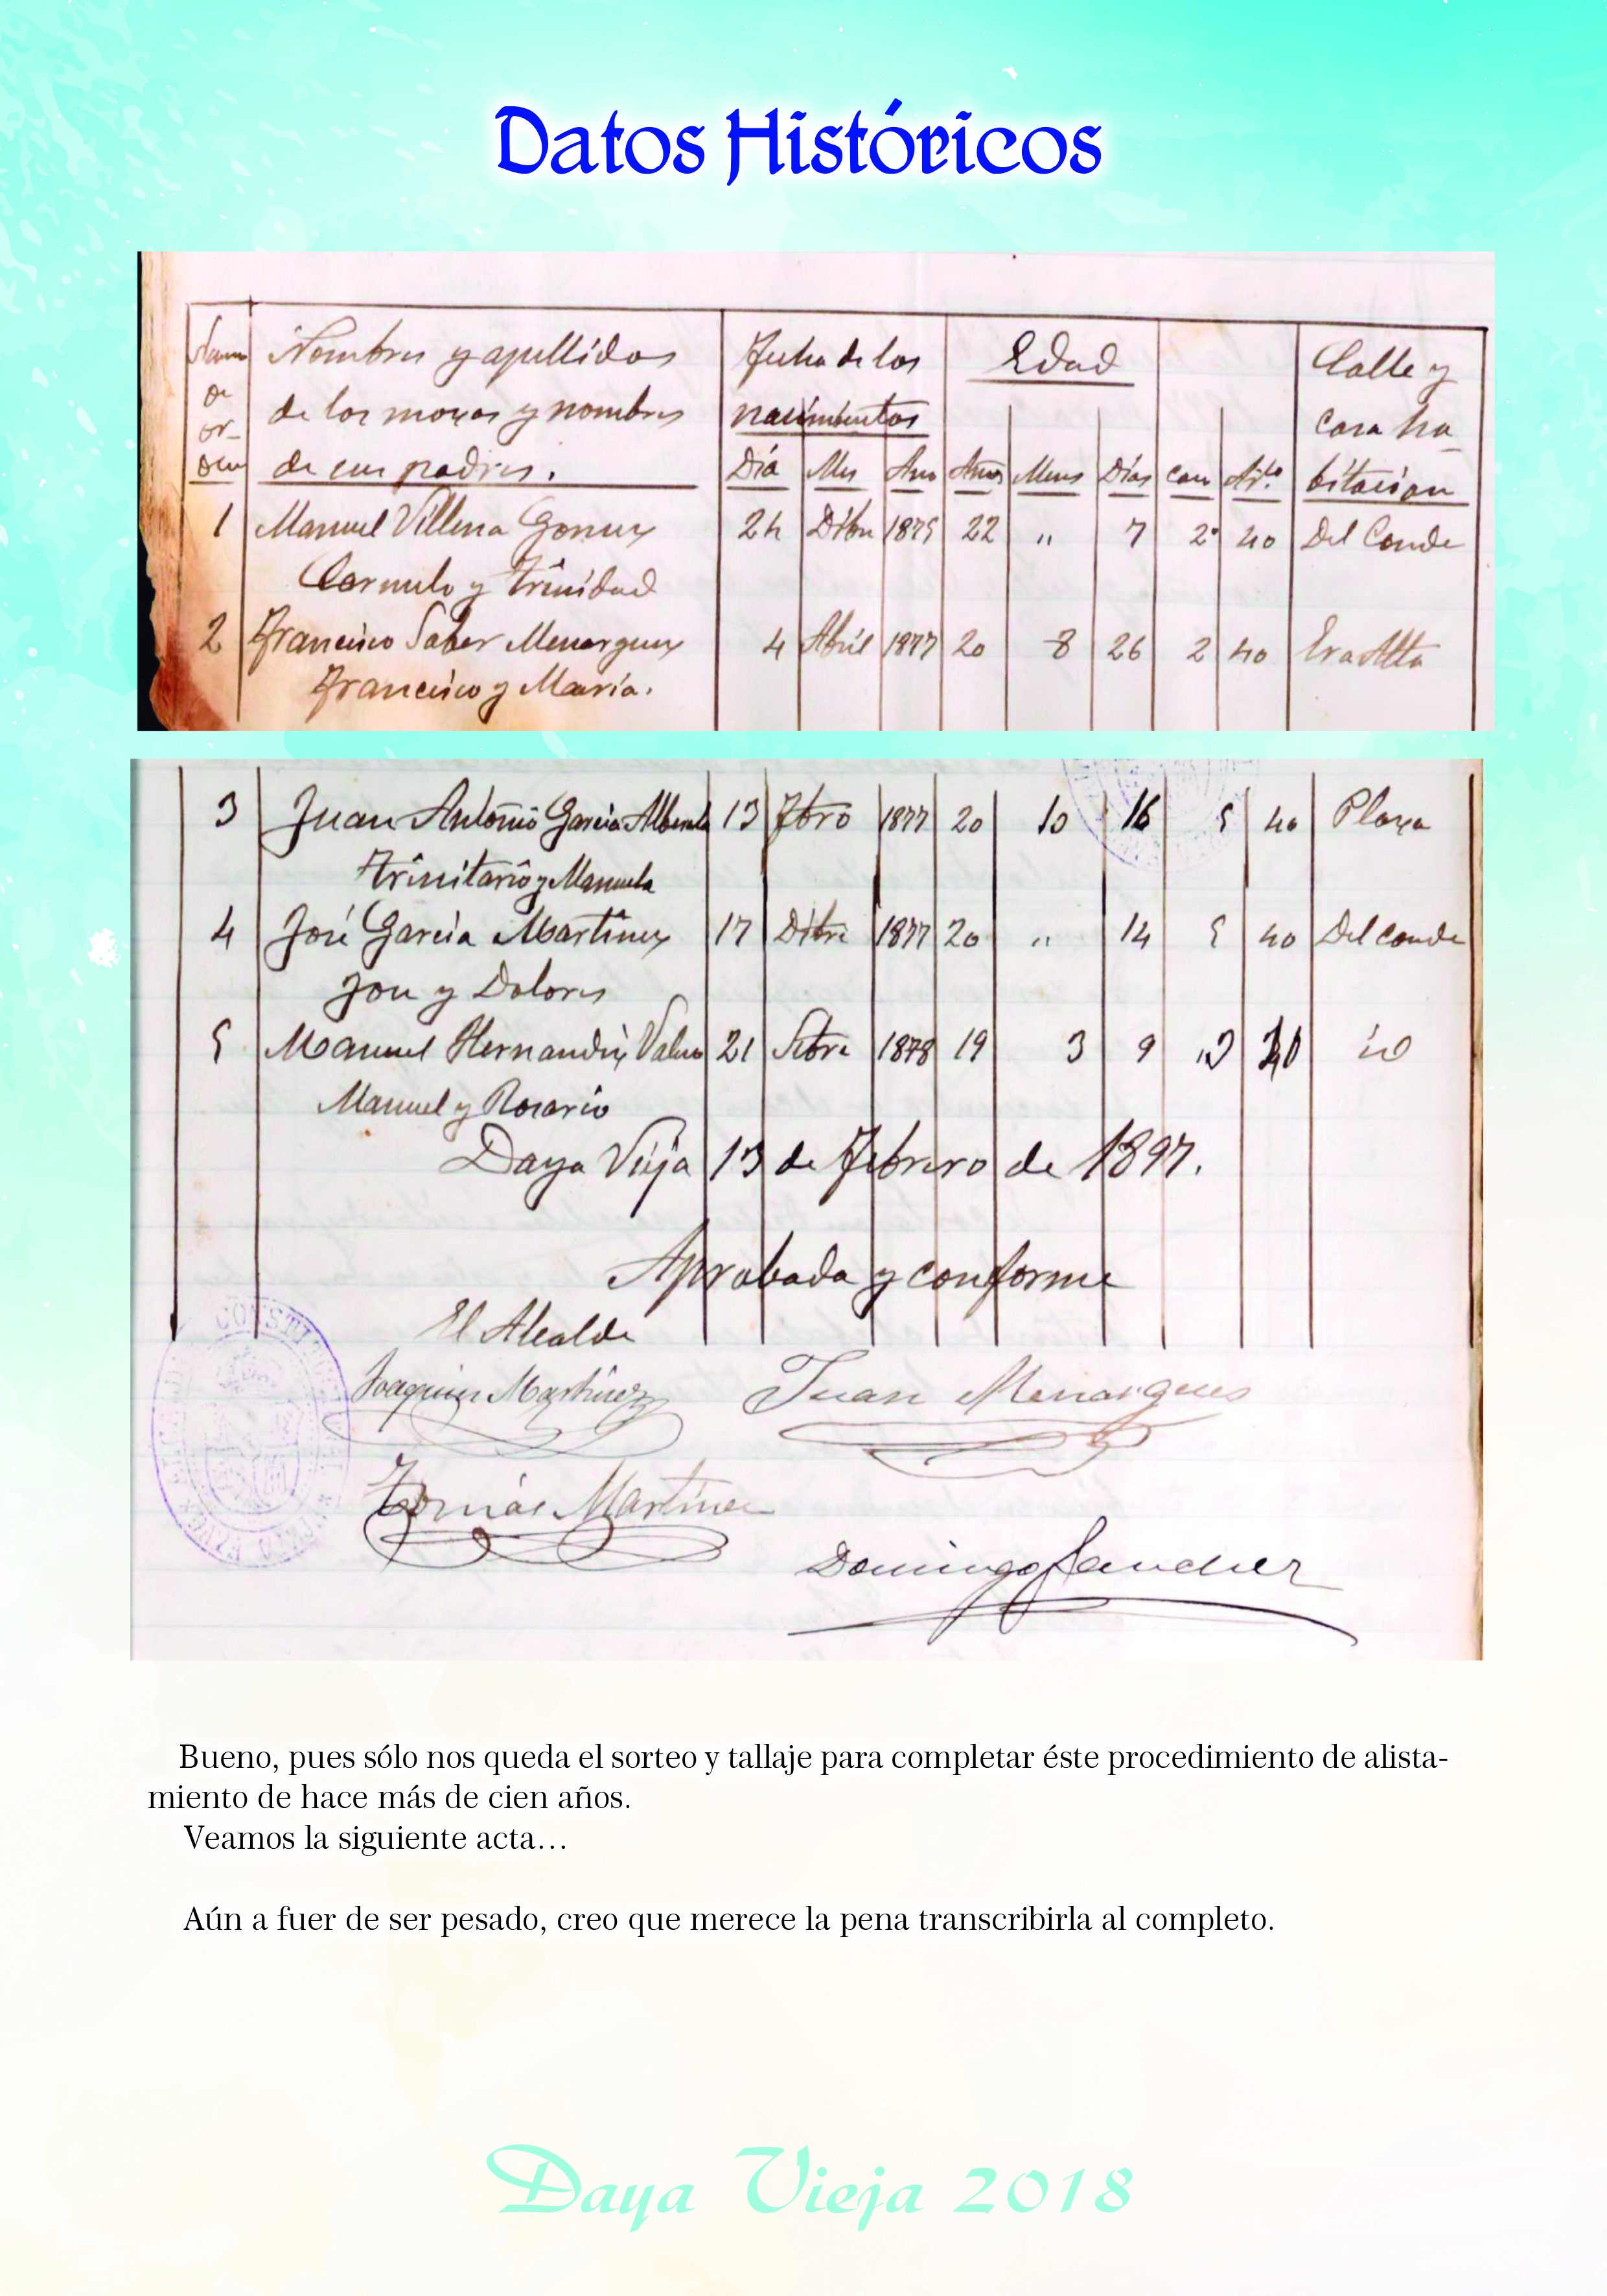 Datos Históricos
Nombres y apellidos
de los mozos y nombres
de sus padres.
Fecha de los
nacimientos
Edad
Calle y
casa ha
bitacion
or-
den
Día Mes Año Años Meses Días Art.º
1 Manuel Villena Gomez 24 Dibre 1875 22 " 7 2º 40 Del Conde
Carmelo y Trinidad
2 Francisco Saber Menarguez 4 Abril 1877 20 8 26 2 40 Era Alta
Francisco y Maria.
3 Juan Antonio Garcia Alberola 13 Fbro 1877 20 10 16 5 40 Plaza
Trinitario y Manuela
4 José Garcia Martinez 17 Dibre 1877 20 " 14 5 40 Del Conde
Jose y Dolores
5 Manuel Hernandez 21 Setbre 1878 19 3 9 40 id
Manuel y Rosario
Daya Vieja 13 de Febrero de 1897.
Aprobada y conforme
El Alcalde
Joaquin Martinez Juan Menargues
Tomás Martinez
Domingo Sanchez
Bueno, pues sólo nos queda el sorteo y tallaje para completar éste procedimiento de alista-
miento de hace más de cien años.
Veamos la siguiente acta…
Aún a fuer de ser pesado, creo que merece la pena transcribirla al completo.
Daya Vieja 2018